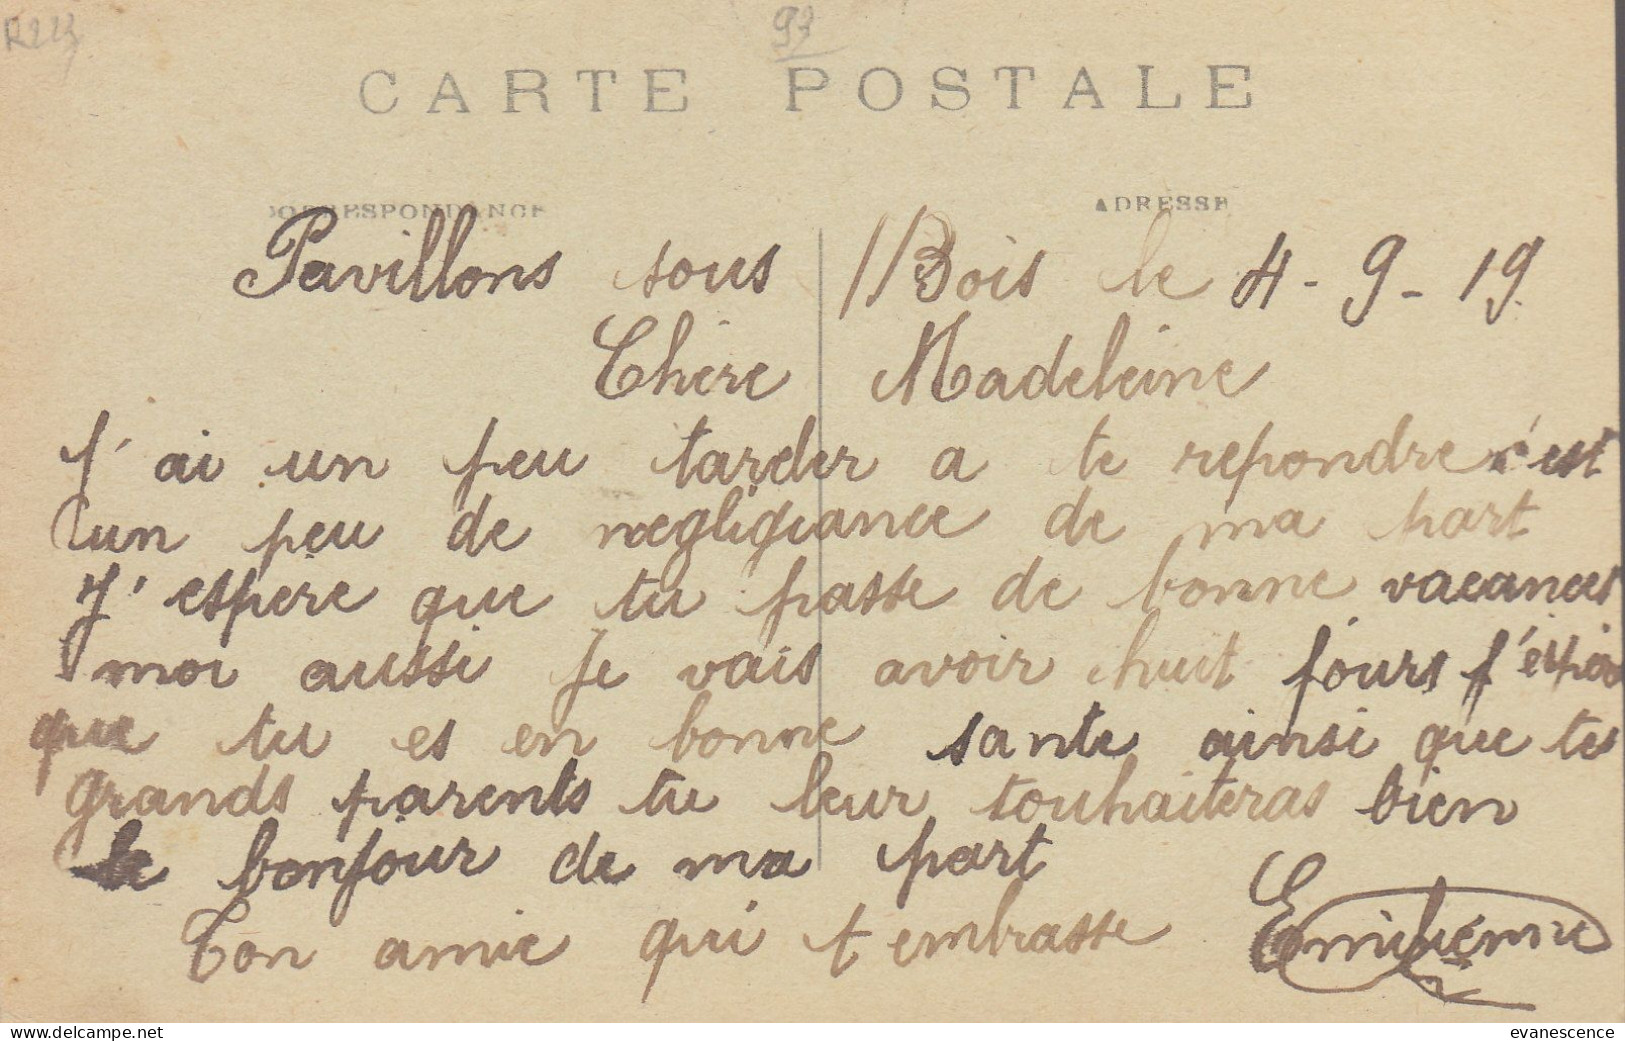 R223
93
CARTE POSTALE
CORRESPONDANCE ADRESSE
Pavillons sous //Bois le 4-9-19
Chere Madeleine
J'ai un peu tarder a te repondre c'est
un peu de negligeance de ma part
J'espere que tu passe de bonne vacances
moi aussi je vais avoir huit jours j'espere
que tu es en bonne sante ainsi que tes
grands parents tu leur souhaiteras bien
le bonjour de ma part
Ton amie qui t embrasse Emilienne
evanescence